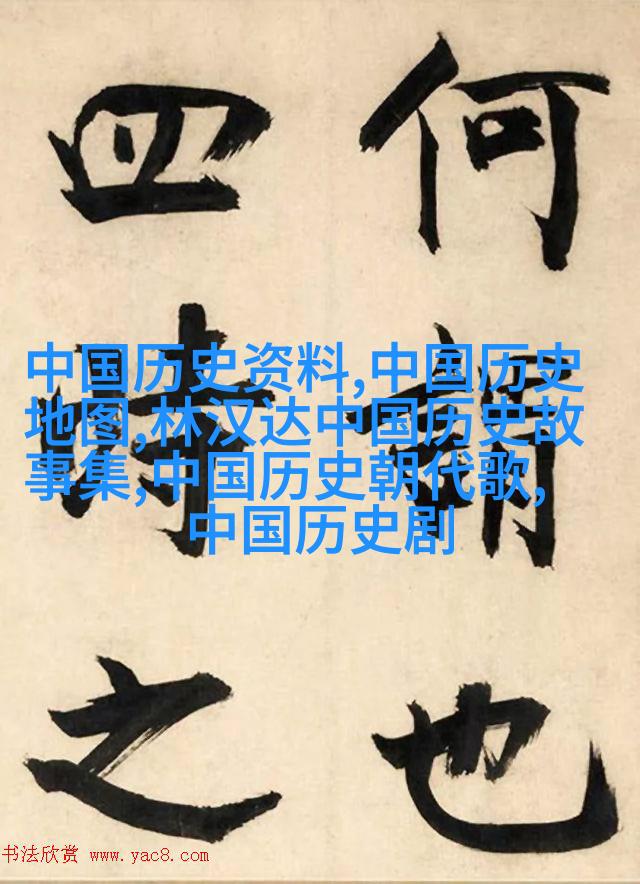 何謂也
四時之
中国历史资料,中国历史
地图,林汉达中国历史故
事集,中国历史朝代歌,
中国历史剧
书法欣赏 www.yac8.com